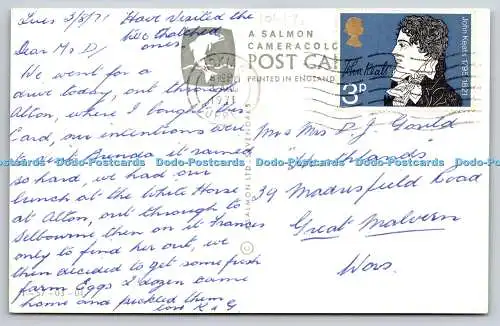 Tues 3/8/71 Have visited the
two thatched
ones.
Dear Mr D/
We went for a
drive today, out through
Alton, where I bought this
Card, our intentions were
visit Brenda it rained
so hard, we had our
lunch at the White Horse
at Alton, out through to
Selbourne then on to Frances
only to find her out, we
then decided to get some fresh
farm Eggs 2 dozen came
home and pickled them
love K & G
A SALMON
CAMERACOLO
POST CA
PRINTED IN ENGLAND
1971
SALMON LTD., SEVENOAKS
John Keats 1795-1821
John Keats
3p
Mrs Mrs R J Gould
39 Madresfield Road
Great Malvern
Wors.
Dodo-Postcards Dodo-Postcards Dodo-Postcards Dodo-Postcards Dodo-Postcards Dodo-Postcards